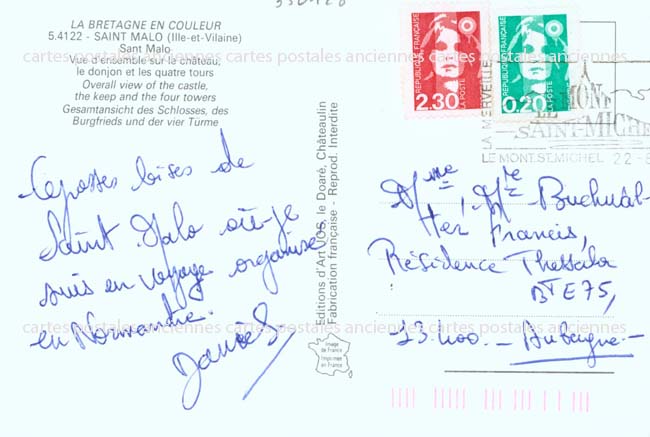 LA BRETAGNE EN COULEUR
5.4122 - SAINT MALO (Ille-et-Vilaine)
Sant Malo
Vue d'ensemble sur le château,
le donjon et les quatre tours
Overall view of the castle,
the keep and the four towers
Gesamtansicht des Schlosses, des
Burgfrieds und der vier Türme
Grosses bises de
Saint Malo où je
suis en voyage organisé
en Normandie.
Editions d'Art JOS le Doaré, Châteaulin
Fabrication française - Reprod. Interdite
Image
de France
Imprimée
en France
REPUBLIQUE FRANÇAISE
2.30
LA POSTE
REPUBLIQUE FRANÇAISE
0.20
LA POSTE
LA MERVEILLE
LE MONT
SAINT-MICHEL
LE MONT.ST.MICHEL 22-8
Mme, Mr
Francis,
Résidence
BTE 75,
13.400 - Aubagne -
cartes postales anciennes cartes postales anciennes cartes postales anciennes
cartes postales anciennes cartes postales anciennes cartes postales anciennes